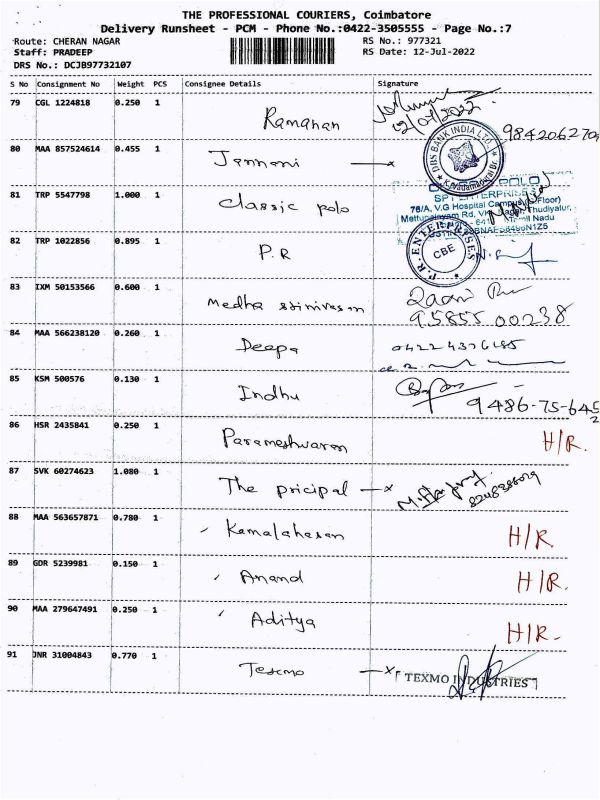 THE PROFESSIONAL COURIERS, Coimbatore
Delivery Runsheet - PCM - Phone No.:0422-3505555 - Page No.:7
Route: CHERAN NAGAR RS No.: 977321
Staff: PRADEEP RS Date: 12-Jul-2022
DRS No.: DCJB97732107
S No Consignment No Weight PCS Consignee Details Signature
79 CGL 1224818 0.250 1 Ramanan 12/07/2022
DBS BANK INDIA LTD. 9842062709
80 MAA 857524614 0.455 1 Janani x
81 TRP 5547798 1.000 1 Classic polo
POLO
SP ENTERPRISES
78/A, V.G Hospital Campus Floor)
Mettupalayam Rd, Thudiyalur,
Tamil Nadu
82 TRP 1022856 0.895 1 P.R
P.R. ENTERPRISES CBE
83 IXM 50153566 0.600 1 Medha srinivasan
95855 00238
84 MAA 566238120 0.260 1 Deepa 0422 4376185
85 KSM 500576 0.130 1 Indhu
9486-75-6452
86 HSR 2435841 0.250 1 Parameshwaran H/R.
87 SVK 60274623 1.080 1 The pricipal x
88 MAA 563657871 0.780 1 Kamalahasan H/R.
89 GDR 5239981 0.150 1 Anand H/R.
90 MAA 279647491 0.250 1 Aditya H/R.
91 JNR 31004843 0.770 1 Texmo x TEXMO INDUSTRIES